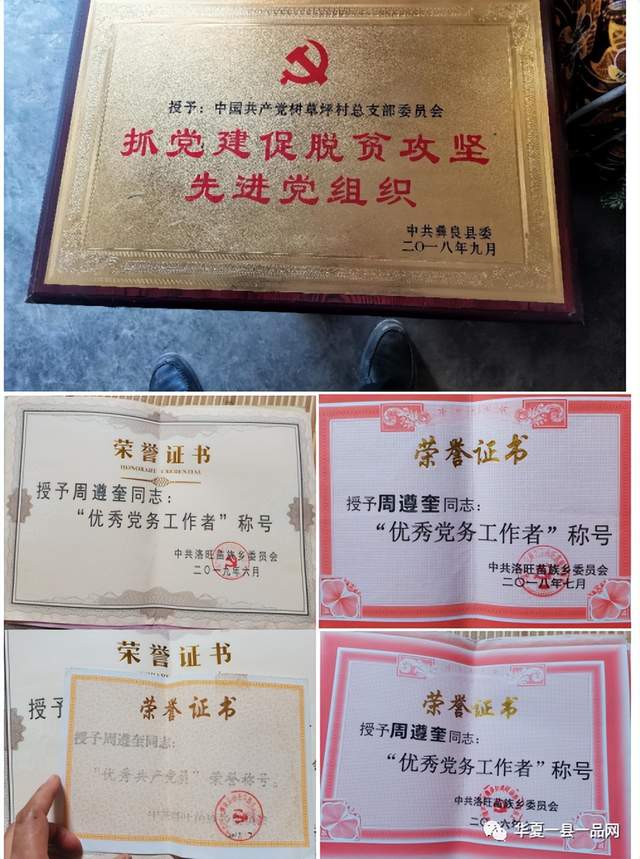 授予：中国共产党树草坪村总支部委员会
抓党建促脱贫攻坚
先进党组织
中共彝良县委
二〇一八年九月
荣誉证书
授予周遵奎同志：
“优秀党务工作者”称号
中共洛旺苗族乡委员会
二〇一九年六月
荣誉证书
授予周遵奎同志：
“优秀党务工作者”称号
中共洛旺苗族乡委员会
二〇一八年七月
荣誉证书
授予
荣誉证书
授予周遵奎同志：
“优秀共产党员”荣誉称号。
荣誉证书
授予周遵奎同志：
“优秀党务工作者”称号
中共洛旺苗族乡委员会
二〇一六
华夏一县一品网